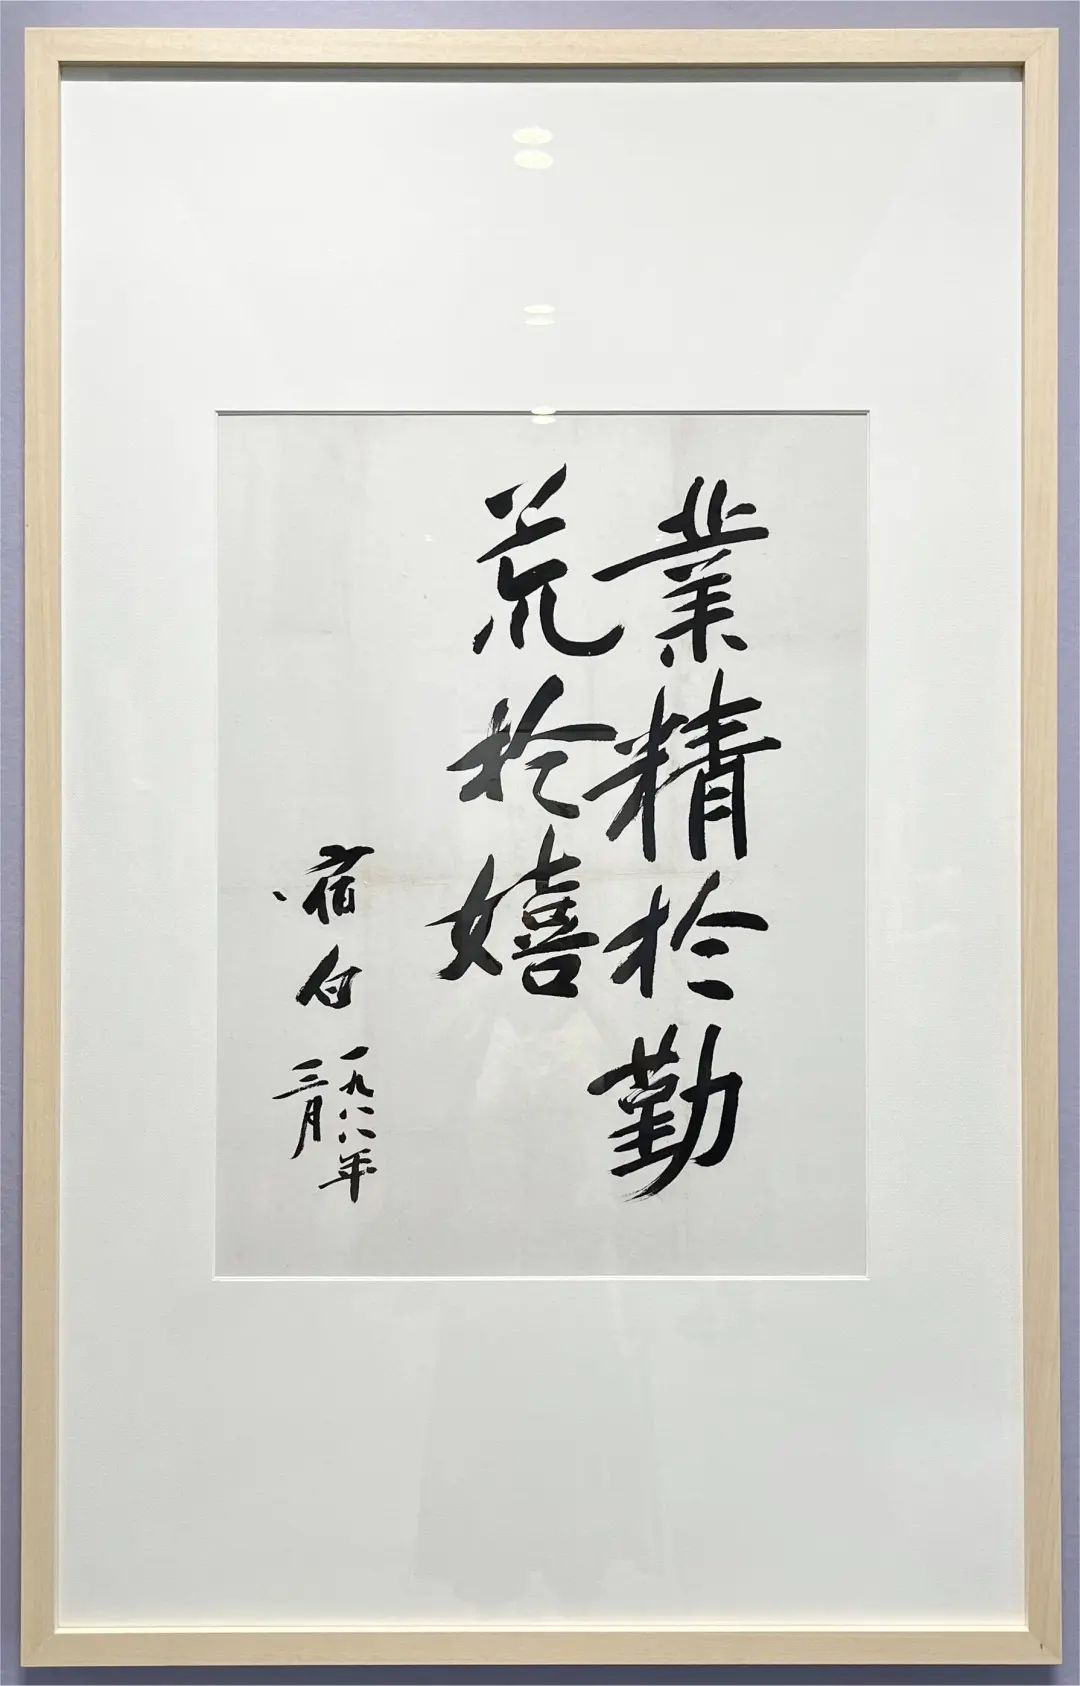 業精於勤
荒於嬉
宿白
一九八八年
三月